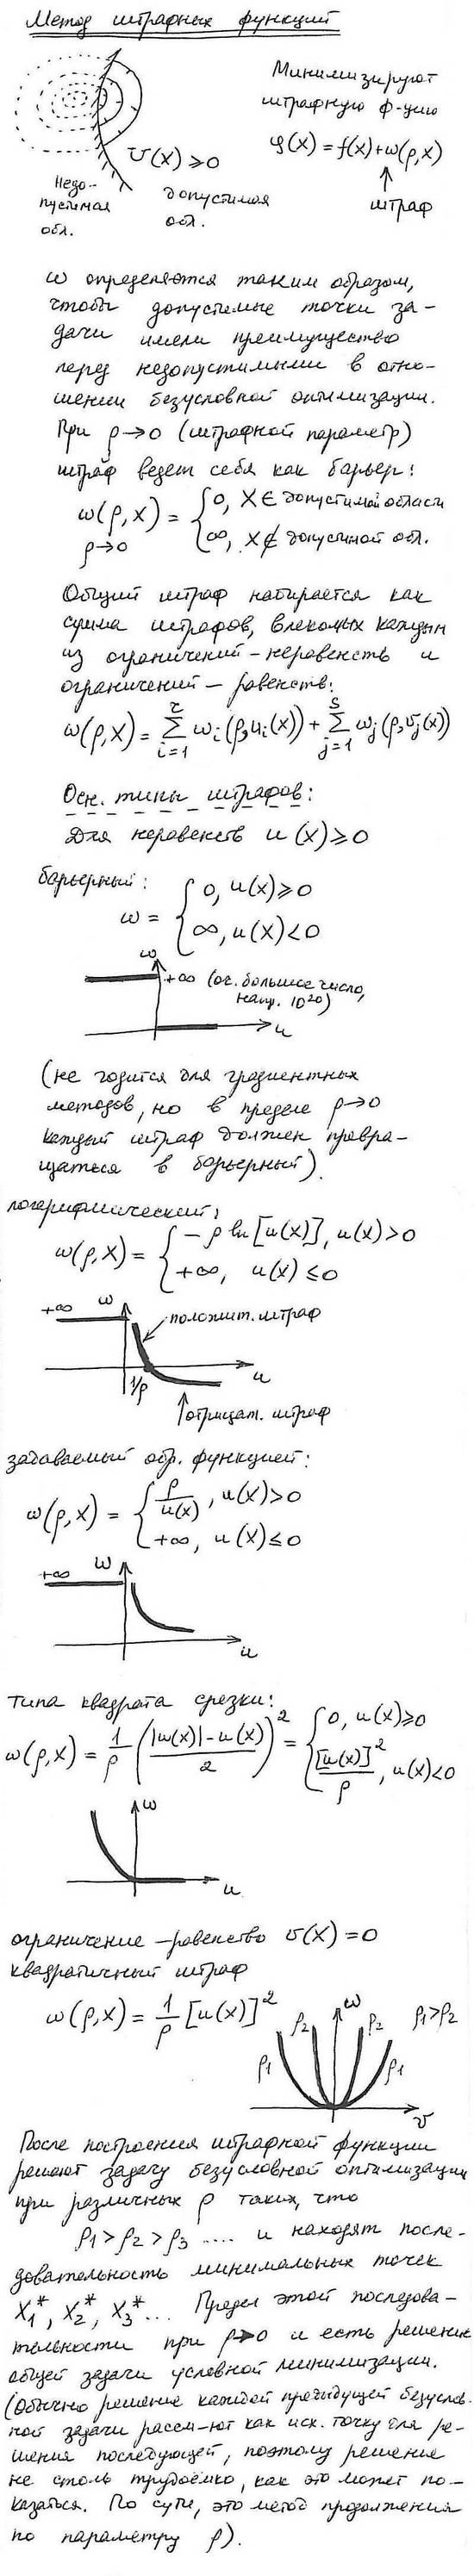 Метод штрафных функций
Минимизируют
штрафную ф-цию
φ(X) = f(X) + ω(ρ,X)
штраф
U(X) ≥ 0
Недо-
пустимая
обл.
допустимая
обл.
ω определяется таким образом,
чтобы допустимые точки за-
дачи имели преимущество
перед недопустимыми в отно-
шении безусловной оптимизации.
При ρ→0 (штрафной параметр)
штраф ведет себя как барьер:
ω(ρ,X) = { 0, X ∈ допустимой области
ρ→0 { ∞, X ∉ допустимой обл.
Общий штраф набирается как
сумма штрафов, влекомых каждым
из ограничений-неравенств и
ограничений-равенств:
ω(ρ,X) = Σ_{i=1}^{r} ω_i(ρ,u_i(X)) + Σ_{j=1}^{s} ω_j(ρ,v_j(X))
Осн. типы штрафов:
Для неравенств u(X) ≥ 0
барьерный:
ω = { 0, u(X) ≥ 0
{ ∞, u(X) < 0
ω
+∞ (оч. большое число,
напр. 10^20)
u
(не годится для градиентных
методов, но в пределе ρ→0
каждый штраф должен превра-
щаться в барьерный).
логарифмический:
ω(ρ,X) = { -ρ ln[u(X)], u(X) > 0
{ +∞, u(X) ≤ 0
+∞ ω
положит. штраф
1/ρ
u
отрицат. штраф
задаваемый обр. функцией:
ω(ρ,X) = { ρ/u(X), u(X) > 0
{ +∞, u(X) ≤ 0
+∞ ω
u
типа квадрата срезки:
ω(ρ,X) = 1/ρ (|u(X)| - u(X) / 2)^2 = { 0, u(X) ≥ 0
{ [u(X)]^2/ρ, u(X) < 0
ω
u
ограничение-равенство v(X) = 0
квадратичный штраф
ω(ρ,X) = 1/ρ [u(X)]^2
ω
ρ₁ ρ₂ ρ₂ ρ₁ ρ₁>ρ₂
v
После построения штрафной функции
решают задачу безусловной оптимизации
при различных ρ таких, что
ρ₁ > ρ₂ > ρ₃ .... и находят после-
довательность минимальных точек
X₁*, X₂*, X₃*... Предел этой последова-
тельности при ρ→0 и есть решение
общей задачи условной минимизации.
(Обычно решение каждой предыдущей безуслов-
ной задачи рассм-ют как исх. точку для ре-
шения последующей, поэтому решение
не столь трудоёмко, как это может по-
казаться. По сути, это метод продолжения
по параметру ρ).